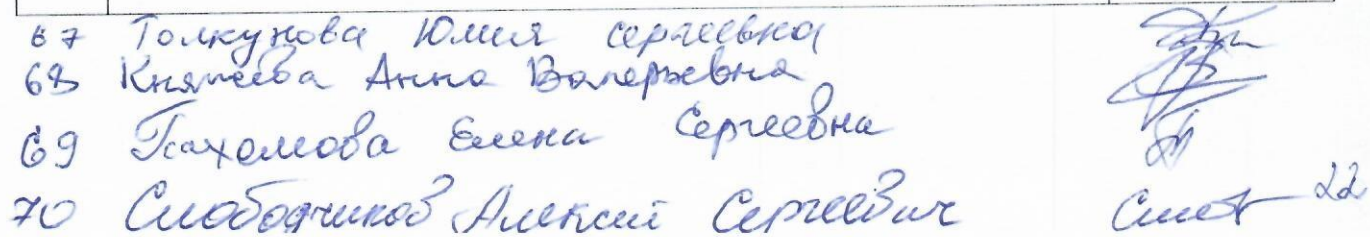 67 Толкунова Юлия Сергеевна
68 Князева Анна Валерьевна
69 Пахомова Елена Сергеевна
70 Слободчиков Алексей Сергеевич 22